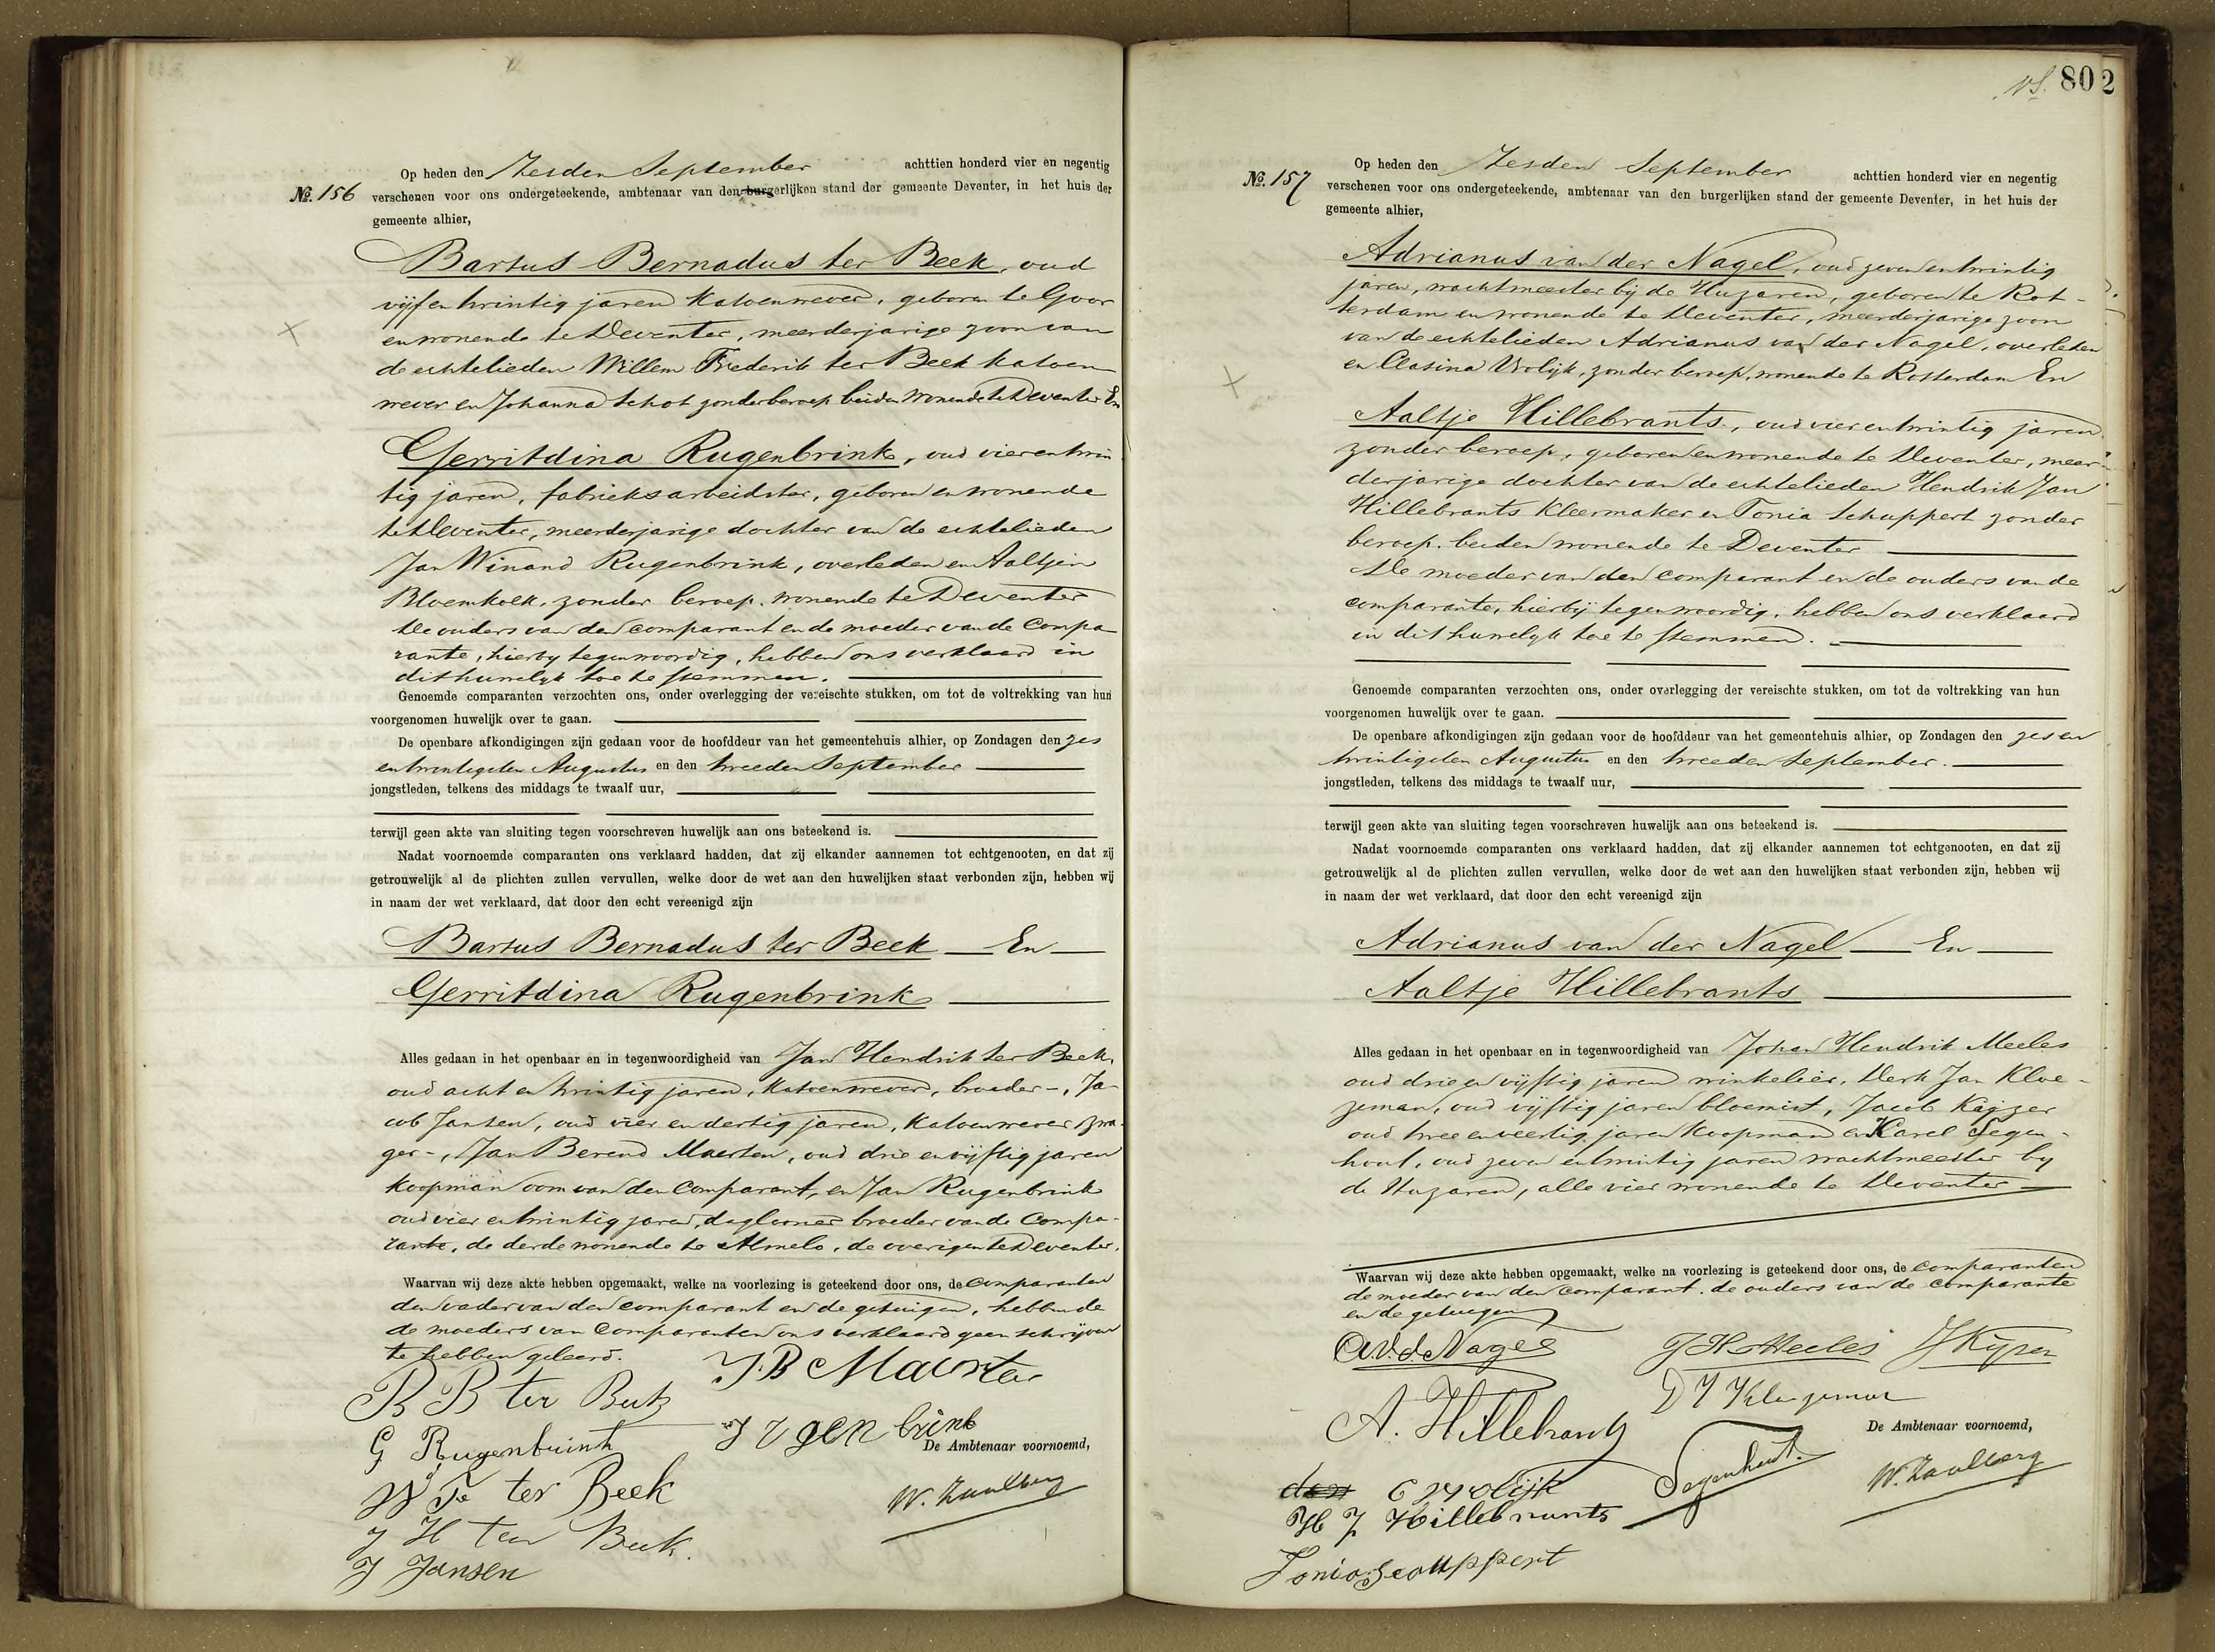 Op heden den Zesden September achttien honderd vier en negentig
№. 156 verschenen voor ons ondergeteekende, ambtenaar van den burgerlijken stand der gemeente Deventer, in het huis der
gemeente alhier,
Bartus Bernadus ter Beek, oud
vijf en twintig jaren katoenwever, geboren te Goor
en wonende te Deventer, meerderjarige zoon van
de echtelieden Willem Frederik ter Beek katoen
wever en Johanna Schot zonder beroep beiden wonende te Deventer En
Gerritdina Rugenbrink, oud vier en twin
tig jaren, fabrieksarbeidster, geboren en wonende
te Deventer, meerderjarige dochter van de echtelieden
Jan Winand Rugenbrink, overleden en Aaltjen
Bloemkolk, zonder beroep, wonende te Deventer
De ouders van den comparant en de moeder van de Compa
rante, hierby tegenwoordig, hebben ons verklaard in
dit huwelyk toe te stemmen.
Genoemde comparanten verzochten ons, onder overlegging der vereischte stukken, om tot de voltrekking van hun
voorgenomen huwelijk over te gaan.
De openbare afkondigingen zijn gedaan voor de hoofddeur van het gemeentehuis alhier, op Zondagen den zes
en twintigsten Augustus en den tweeden September
jongstleden, telkens des middags te twaalf uur,
terwijl geen akte van sluiting tegen voorschreven huwelijk aan ons beteekend is.
Nadat voornoemde comparanten ons verklaard hadden, dat zij elkander aannemen tot echtgenooten, en dat zij
getrouwelijk al de plichten zullen vervullen, welke door de wet aan den huwelijken staat verbonden zijn, hebben wij
in naam der wet verklaard, dat door den echt vereenigd zijn
Bartus Bernadus ter Beek En
Gerritdina Rugenbrink
Alles gedaan in het openbaar en in tegenwoordigheid van Jan Hendrik ter Beek,
oud acht en twintig jaren, katoenwever, broeder -, Ja-
cob Jansen, oud vier en dertig jaren, katoenwever, zwa-
ger -, Jan Berend Maerten, oud drie en vijftig jaren
koopman oom van den Comparant, en Jan Rugenbrink
oud vier en twintig jaren, daglooner broeder van de Compa-
rante, de derde wonende te Almelo, de overigen te Deventer.
Waarvan wij deze akte hebben opgemaakt, welke na voorlezing is geteekend door ons, de Comparanten
den vader van den comparant en de getuigen, hebbende
de moeders van Comparanten ons verklaard geen schrijven
te hebben geleerd.
B B ter Beek J. B Maerten
G Rugenbrink
De Ambtenaar voornoemd,
W F ter Beek
W. Zuulberg
J H ter Beek.
J Jansen
802
Op heden den Zesden September achttien honderd vier en negentig
№. 157 verschenen voor ons ondergeteekende, ambtenaar van den burgerlijken stand der gemeente Deventer, in het huis der
gemeente alhier,
Adrianus van der Nagel, oud zeven en twintig
jaren, wachtmeester bij de Huzaren, geboren te Rot-
terdam en wonende te Deventer, meerderjarige zoon
van de echtelieden Adrianus van der Nagel, overleden
en Clasina Vrolijk, zonder beroep, wonende te Rotterdam En
Aaltje Hillebrants, oud vier en twintig jaren
zonder beroep, geboren en wonende te Deventer, meer-
derjarige dochter van de echtelieden Hendrik Jan
Hillebrants kleermaker en Tonia Schuppert zonder
beroep, beiden wonende te Deventer
De moeder van den comparant en de ouders van de
comparante, hierby tegenwoordig, hebben ons verklaard
in dit huwelyk toe te stemmen.
Genoemde comparanten verzochten ons, onder overlegging der vereischte stukken, om tot de voltrekking van hun
voorgenomen huwelijk over te gaan.
De openbare afkondigingen zijn gedaan voor de hoofddeur van het gemeentehuis alhier, op Zondagen den zes en
twintigsten Augustus en den tweeden September.
jongstleden, telkens des middags te twaalf uur,
terwijl geen akte van sluiting tegen voorschreven huwelijk aan ons beteekend is.
Nadat voornoemde comparanten ons verklaard hadden, dat zij elkander aannemen tot echtgenooten, en dat zij
getrouwelijk al de plichten zullen vervullen, welke door de wet aan den huwelijken staat verbonden zijn, hebben wij
in naam der wet verklaard, dat door den echt vereenigd zijn
Adrianus van der Nagel En
Aaltje Hillebrants
Alles gedaan in het openbaar en in tegenwoordigheid van Johan Hendrik Meeles
oud drie en vijftig jaren winkelier, Derk Jan Kloe-
zeman, oud vijftig jaren bloemist, Jacob Kijzer
oud twee en veertig jaren koopman en Karel Segen-
hout, oud zeven en twintig jaren wachtmeester by
de Huzaren, alle vier wonende te Deventer
Waarvan wij deze akte hebben opgemaakt, welke na voorlezing is geteekend door ons, de comparanten
de moeder van den comparant, de ouders van de comparante
en de getuigen
A v. d. Nagel J H Meeles J Kijzer
A. Hillebrants D J Kloezeman
De Ambtenaar voornoemd,
C Vrolijk Segenhout.
W. Zuulberg
H J Hillebrants
Tonia Schuppert